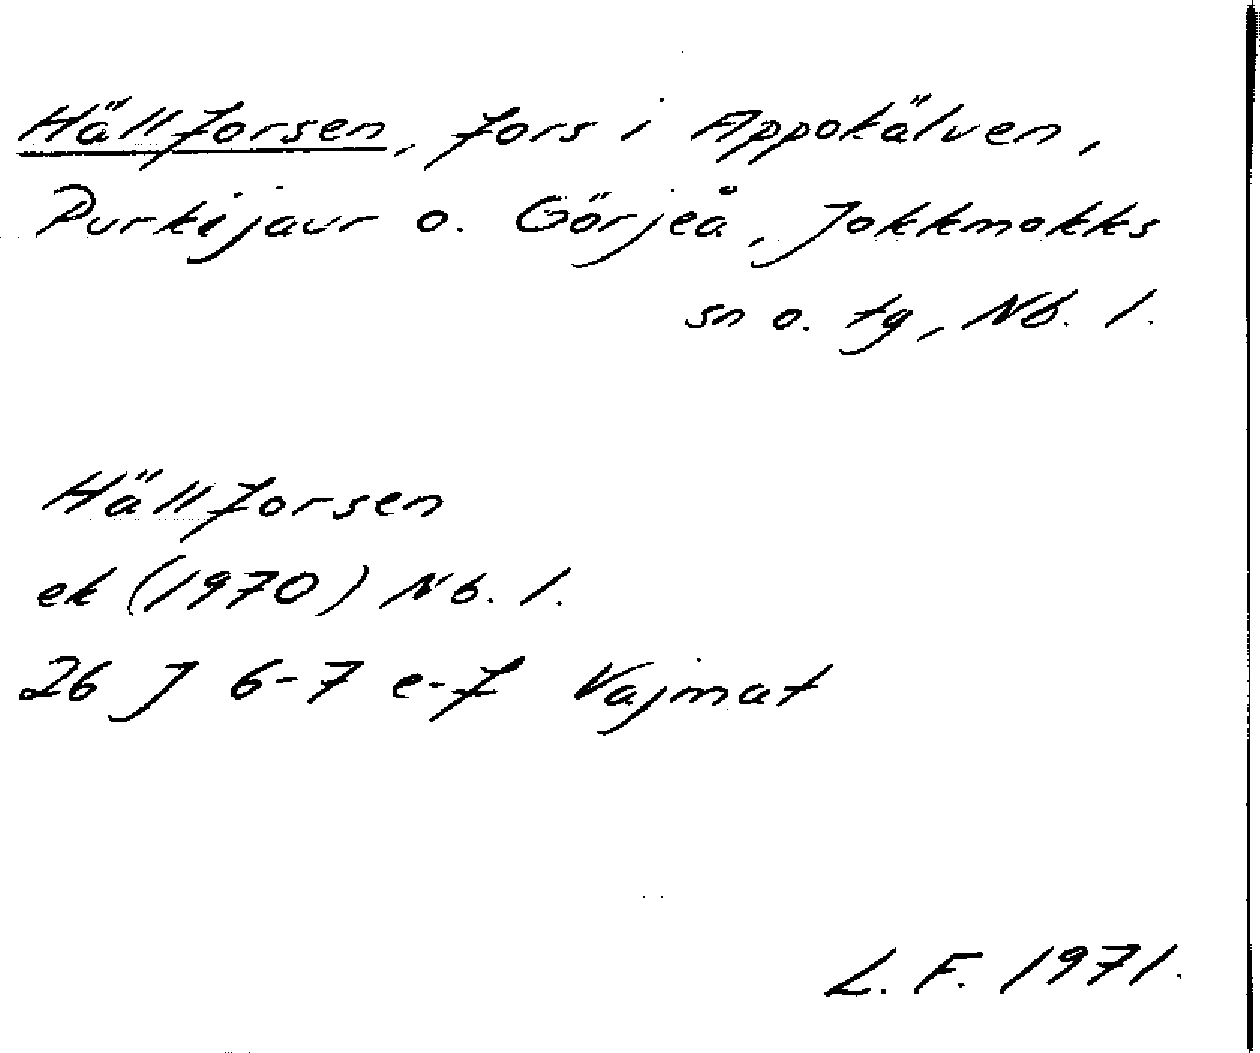 Hällforsen, fors i Appokälven,
Purkijaur o. Görjeå, Jokkmokks
sn o. tg, Nb. l.
Hällforsen
ek (1970) Nb. l.
26 J 6-7 e-f Vajmat
L. F. 1971.